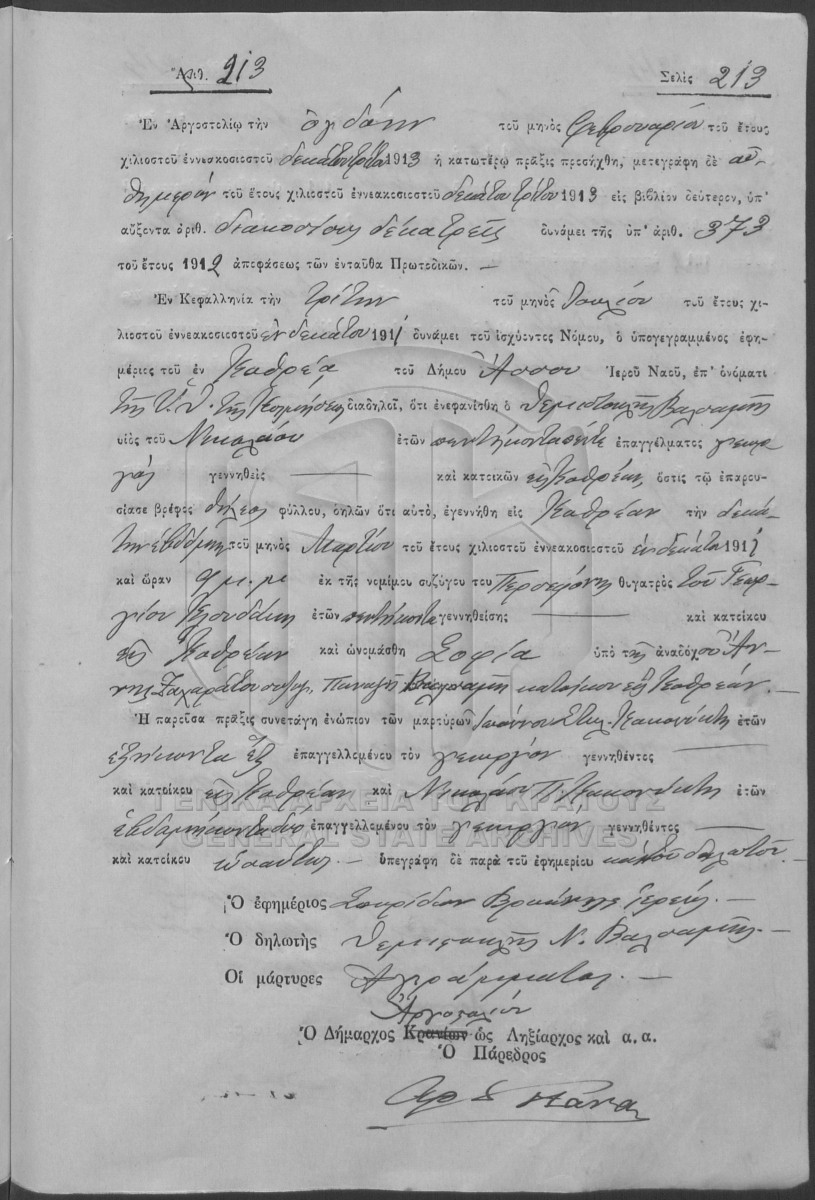 Ἀριθ. 213 Σελὶς 213
Ἐν Ἀργοστολίῳ τὴν ὀγδόην τοῦ μηνὸς Φεβρουαρίου τοῦ ἔτους
χιλιοστοῦ ἐννεακοσιοστοῦ δεκάτου τρίτου 1913 ἡ κατωτέρω πρᾶξις προσήχθη, μετεγράφη δὲ αὐ-
θημερὸν τοῦ ἔτους χιλιοστοῦ ἐννεακοσιοστοῦ δεκάτου τρίτου 1913 εἰς βιβλίον δεύτερον, ὑπ'
αὔξοντα ἀριθ. διακοσίους δεκατρεῖς δυνάμει τῆς ὑπ' ἀριθ. 373
τοῦ ἔτους 1912 ἀποφάσεως τῶν ἐνταῦθα Πρωτοδικῶν. —
Ἐν Κεφαλληνίᾳ τὴν τρίτην τοῦ μηνὸς Ἰουλίου τοῦ ἔτους χι-
λιοστοῦ ἐννεακοσιοστοῦ ἑνδεκάτου 1911 δυνάμει τοῦ ἰσχύοντος Νόμου, ὁ ὑπογεγραμμένος ἐφη-
μέριος τοῦ ἐν Κοθρέα τοῦ Δήμου Ἄσσου Ἱεροῦ Ναοῦ, ἐπ' ὀνόματι
τῆς Ὑ. Θ. τῆς Κοιμήσεως διαδηλοῖ, ὅτι ἐνεφανίσθη ὁ Θεμιστοκλῆς Βαλσαμῆς
υἱὸς τοῦ Νικολάου ἐτῶν πεντήκοντα πέντε ἐπαγγέλματος γεωρ
γὸς γεννηθεὶς — καὶ κατοικῶν εἰς Κοθρέαν, ὅστις τῷ ἐπαρου-
σίασε βρέφος θήλεος φύλλου, δηλῶν ὅτι αὐτὸ, ἐγεννήθη εἰς Κοθρέαν τὴν δεκά-
την ἑβδόμην τοῦ μηνὸς Μαρτίου τοῦ ἔτους χιλιοστοῦ ἐννεακοσιοστοῦ ἑνδεκάτου 1911
καὶ ὥραν 9 μ.μ ἐκ τῆς νομίμου συζύγου του Περσεφόνης θυγατρὸς τοῦ Γεωρ-
γίου Κλουδάκη ἐτῶν πεντήκοντα γεννηθείσης — καὶ κατοίκου
εἰς Κοθρέαν καὶ ὠνομάσθη Σοφία ὑπὸ τῆς ἀναδόχου Ἄν-
νης Ζαχαράτου συζυγ. Παναγῆ Βαλσαμῆ κατοίκου εἰς Κοθρέαν. —
Ἡ παροῦσα πρᾶξις συνετάγη ἐνώπιον τῶν μαρτύρων Ἰωάννου Σπυρ. Κακονύκτη ἐτῶν
ἑξήκοντα ἕξ ἐπαγγελλομένου τὸν γεωργὸν γεννηθέντος —
καὶ κατοίκου εἰς Κοθρέαν καὶ Νικολάου Π. Κακονύκτη ἐτῶν
ἑβδομήκοντα δύο ἐπαγγελλομένου τὸν γεωργὸν γεννηθέντος —
καὶ κατοίκου ὡσαύτως. — ὑπεγράφη δὲ παρὰ τοῦ ἐφημερίου καὶ τοῦ δηλωτοῦ. —
ΓΕΝΙΚΑ ΑΡΧΕΙΑ ΤΟΥ ΚΡΑΤΟΥΣ
GENERAL STATE ARCHIVES
Ὁ ἐφημέριος Σπυρίδων ἱερεύς. —
Ὁ δηλωτὴς Θεμιστοκλῆς Ν. Βαλσαμῆς. —
Οἱ μάρτυρες Ἀγράμματοι. —
Ἀργοστολίου
Ὁ Δήμαρχος Κρανίων ὡς Ληξίαρχος καὶ α. α.
Ὁ Πάρεδρος